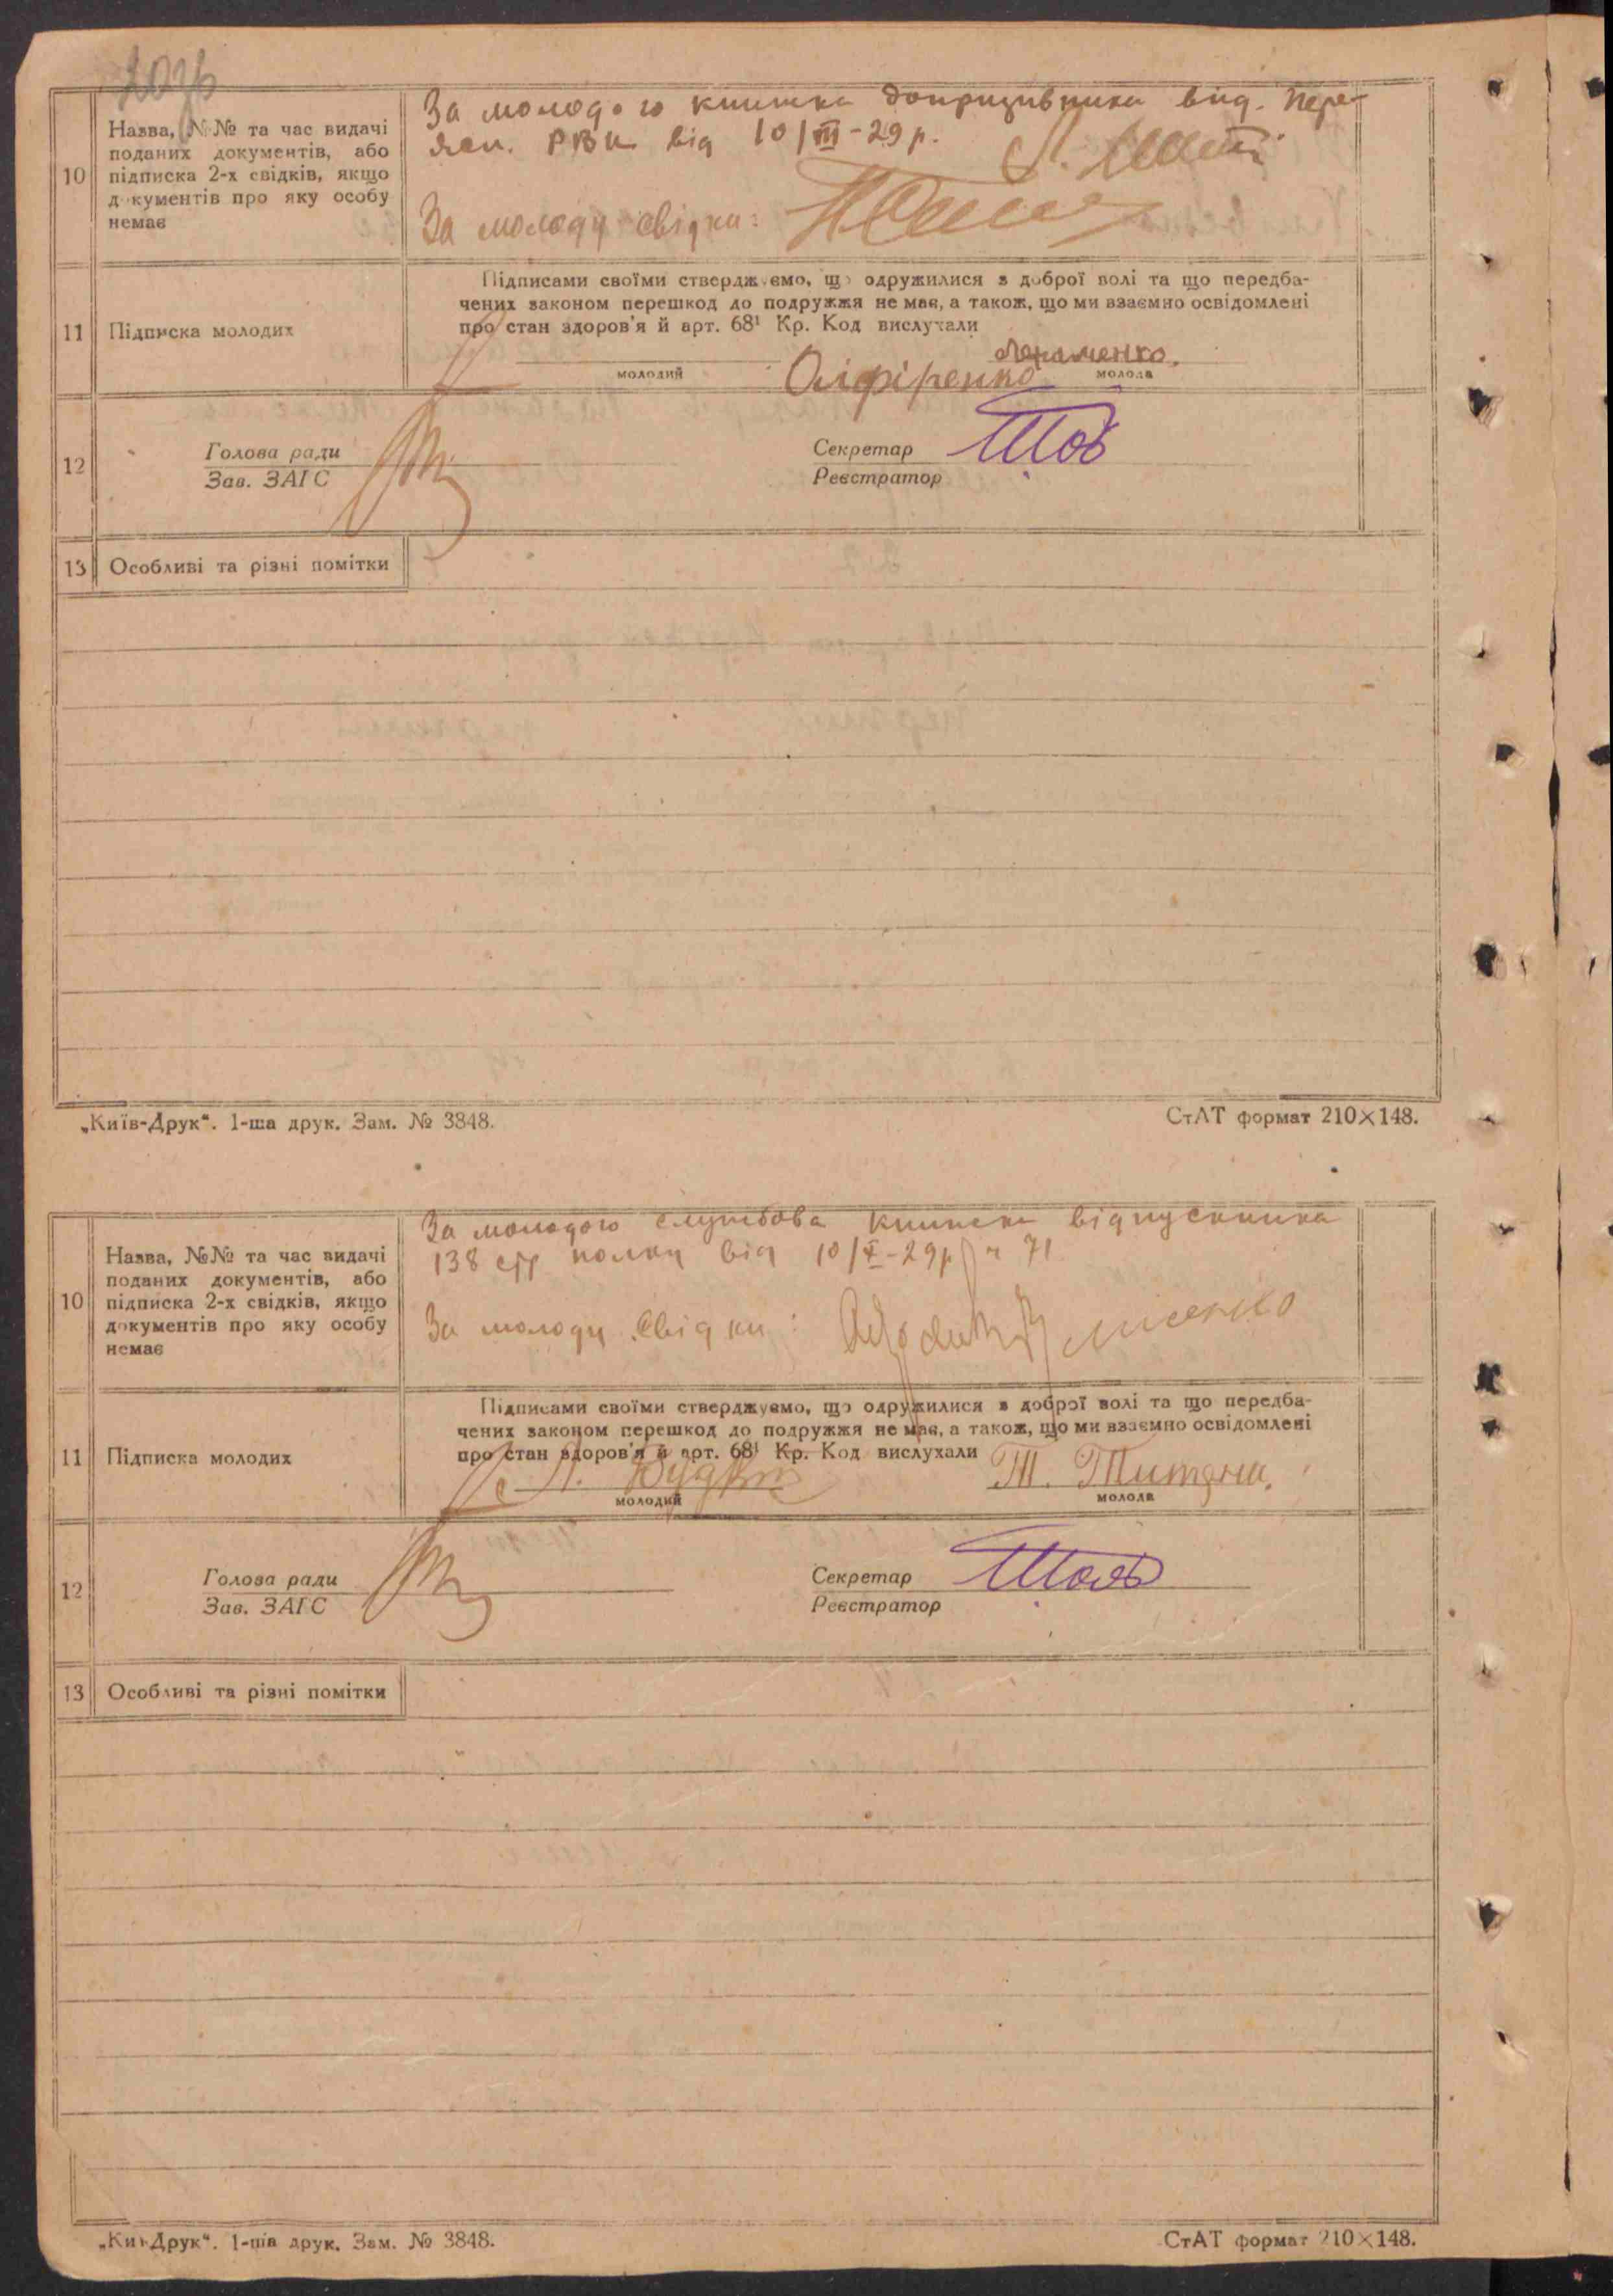 10
Назва, №№ та час видачі
поданих документів, або
підписка 2-х свідків, якщо
д кументів про яку особу
немає
За молодого книжка допризивника вид. Пере-
ясл. РВК від 10/III-29 р.
За молоду свідки:
11
Підписка молодих
Підписами своїми стверджуємо, що одружилися з доброї волі та що передба-
чених законом перешкод до подружжя не має, а також, що ми взаємно освідомлені
про стан здоров'я й арт. 68¹ Кр. Код вислухали
Оліфіренко
молодий
молода
12
Голова ради
Зав. ЗАГС
Секретар
Реєстратор
13
Особливі та різні помітки
„Київ-Друк“. 1-ша друк. Зам. № 3848.
СтАТ формат 210×148.
10
Назва, №№ та час видачі
поданих документів, або
підписка 2-х свідків, якщо
документів про яку особу
немає
За молодого службова книжка відпускника
138 стр полку від 10/X-29р ч 71
За молоду свідки: Лисенко
11
Підписка молодих
Підписами своїми стверджуємо, що одружилися з доброї волі та що передба-
чених законом перешкод до подружжя не має, а також, що ми взаємно освідомлені
про стан здоров'я й арт. 68¹ Кр. Код вислухали
Т.
молодий
молода
12
Голова ради
Зав. ЗАГС
Секретар
Реєстратор
13
Особливі та різні помітки
„Київ-Друк“. 1-ша друк. Зам. № 3848.
СтАТ формат 210×148.